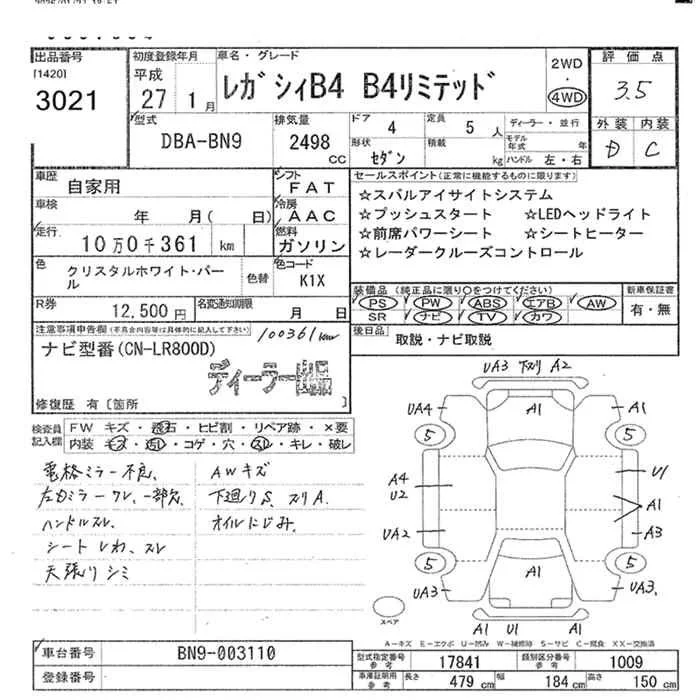 出品番号
[1420]
3021
初度登録年月
平成
27年 1月
車名・グレード
レガシィB4 B4リミテッド
2WD
・
4WD
評価点
3.5
外装 内装
D C
型式
DBA-BN9
排気量
2498
CC
ドア 4
定員 5人
形状 セダン
積載 kg
ディーラー・並行
モデル年式 年
ハンドル 左・右
車歴
自家用
シフト
FAT
車検
年 月( 日)
冷房
AAC
走行
10万0千361 km
燃料
ガソリン
色
クリスタルホワイト・パール
色替
色コード
K1X
R券
12,500円
名変通知期限
月 日
セールスポイント(正常に機能するものに限ります)
☆スバルアイサイトシステム
☆プッシュスタート ☆LEDヘッドライト
☆前席パワーシート ☆シートヒーター
☆レーダークルーズコントロール
装備品(純正品に限り○をつけてください)
新車保証書
PS PW ABS エアB AW
SR ナビ TV カワ
有・無
後日品
取説・ナビ取説
注意事項申告欄(不具合内容等は具体的に記入して下さい)
100361km
ナビ型番(CN-LR800D)
ディーラー出品
修復歴 有〔箇所 〕
検査員記入欄
FW キズ・飛石・ヒビ割・リペア跡・×要
内装 キズ・汚れ・コゲ・穴・スレ・キレ・破レ
電格ミラー不良、
左右ミラーワレ、一部欠
ハンドルスレ、
シートしわ、スレ
天張りシミ
AWキズ
下廻りS、スリA.
オイルにじみ、
UA3 下スリ A2
UA4
A1
A1
5
5
A4
U2
U1
A1
UA2
A3
5
5
UA3
A1
UA3.
スペア
A1 U1 A1
A-キズ E-エクボ U-凹み W-補修跡 S-サビ C-腐食 XX-交換済
車台番号
BN9-003110
登録番号
型式指定番号
参考
17841
類別区分番号
参考
1009
車庫証明用
参考
長さ 479 cm
幅 184 cm
高さ 150 cm